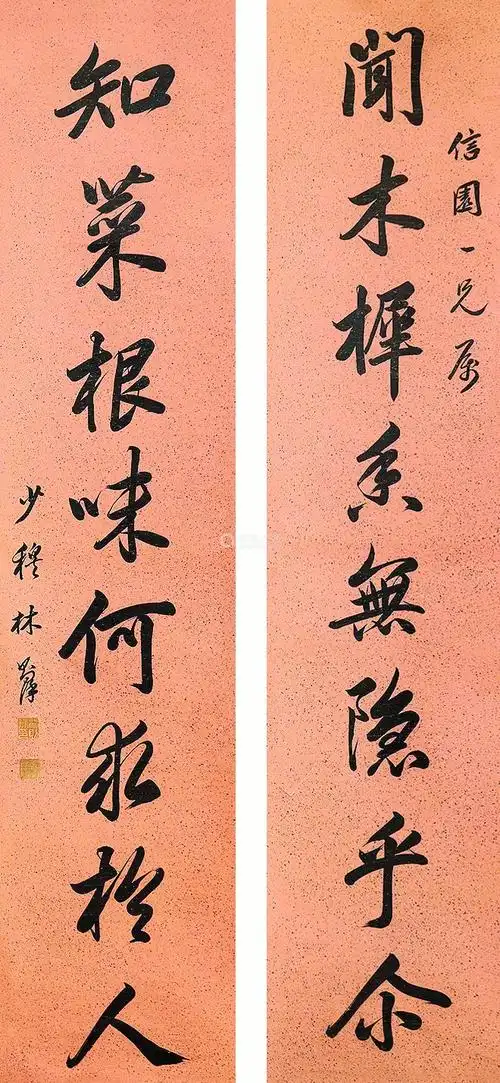 聞木樨香無隐乎尒
信園一兄属
知菜根味何求於人
少穆林則徐